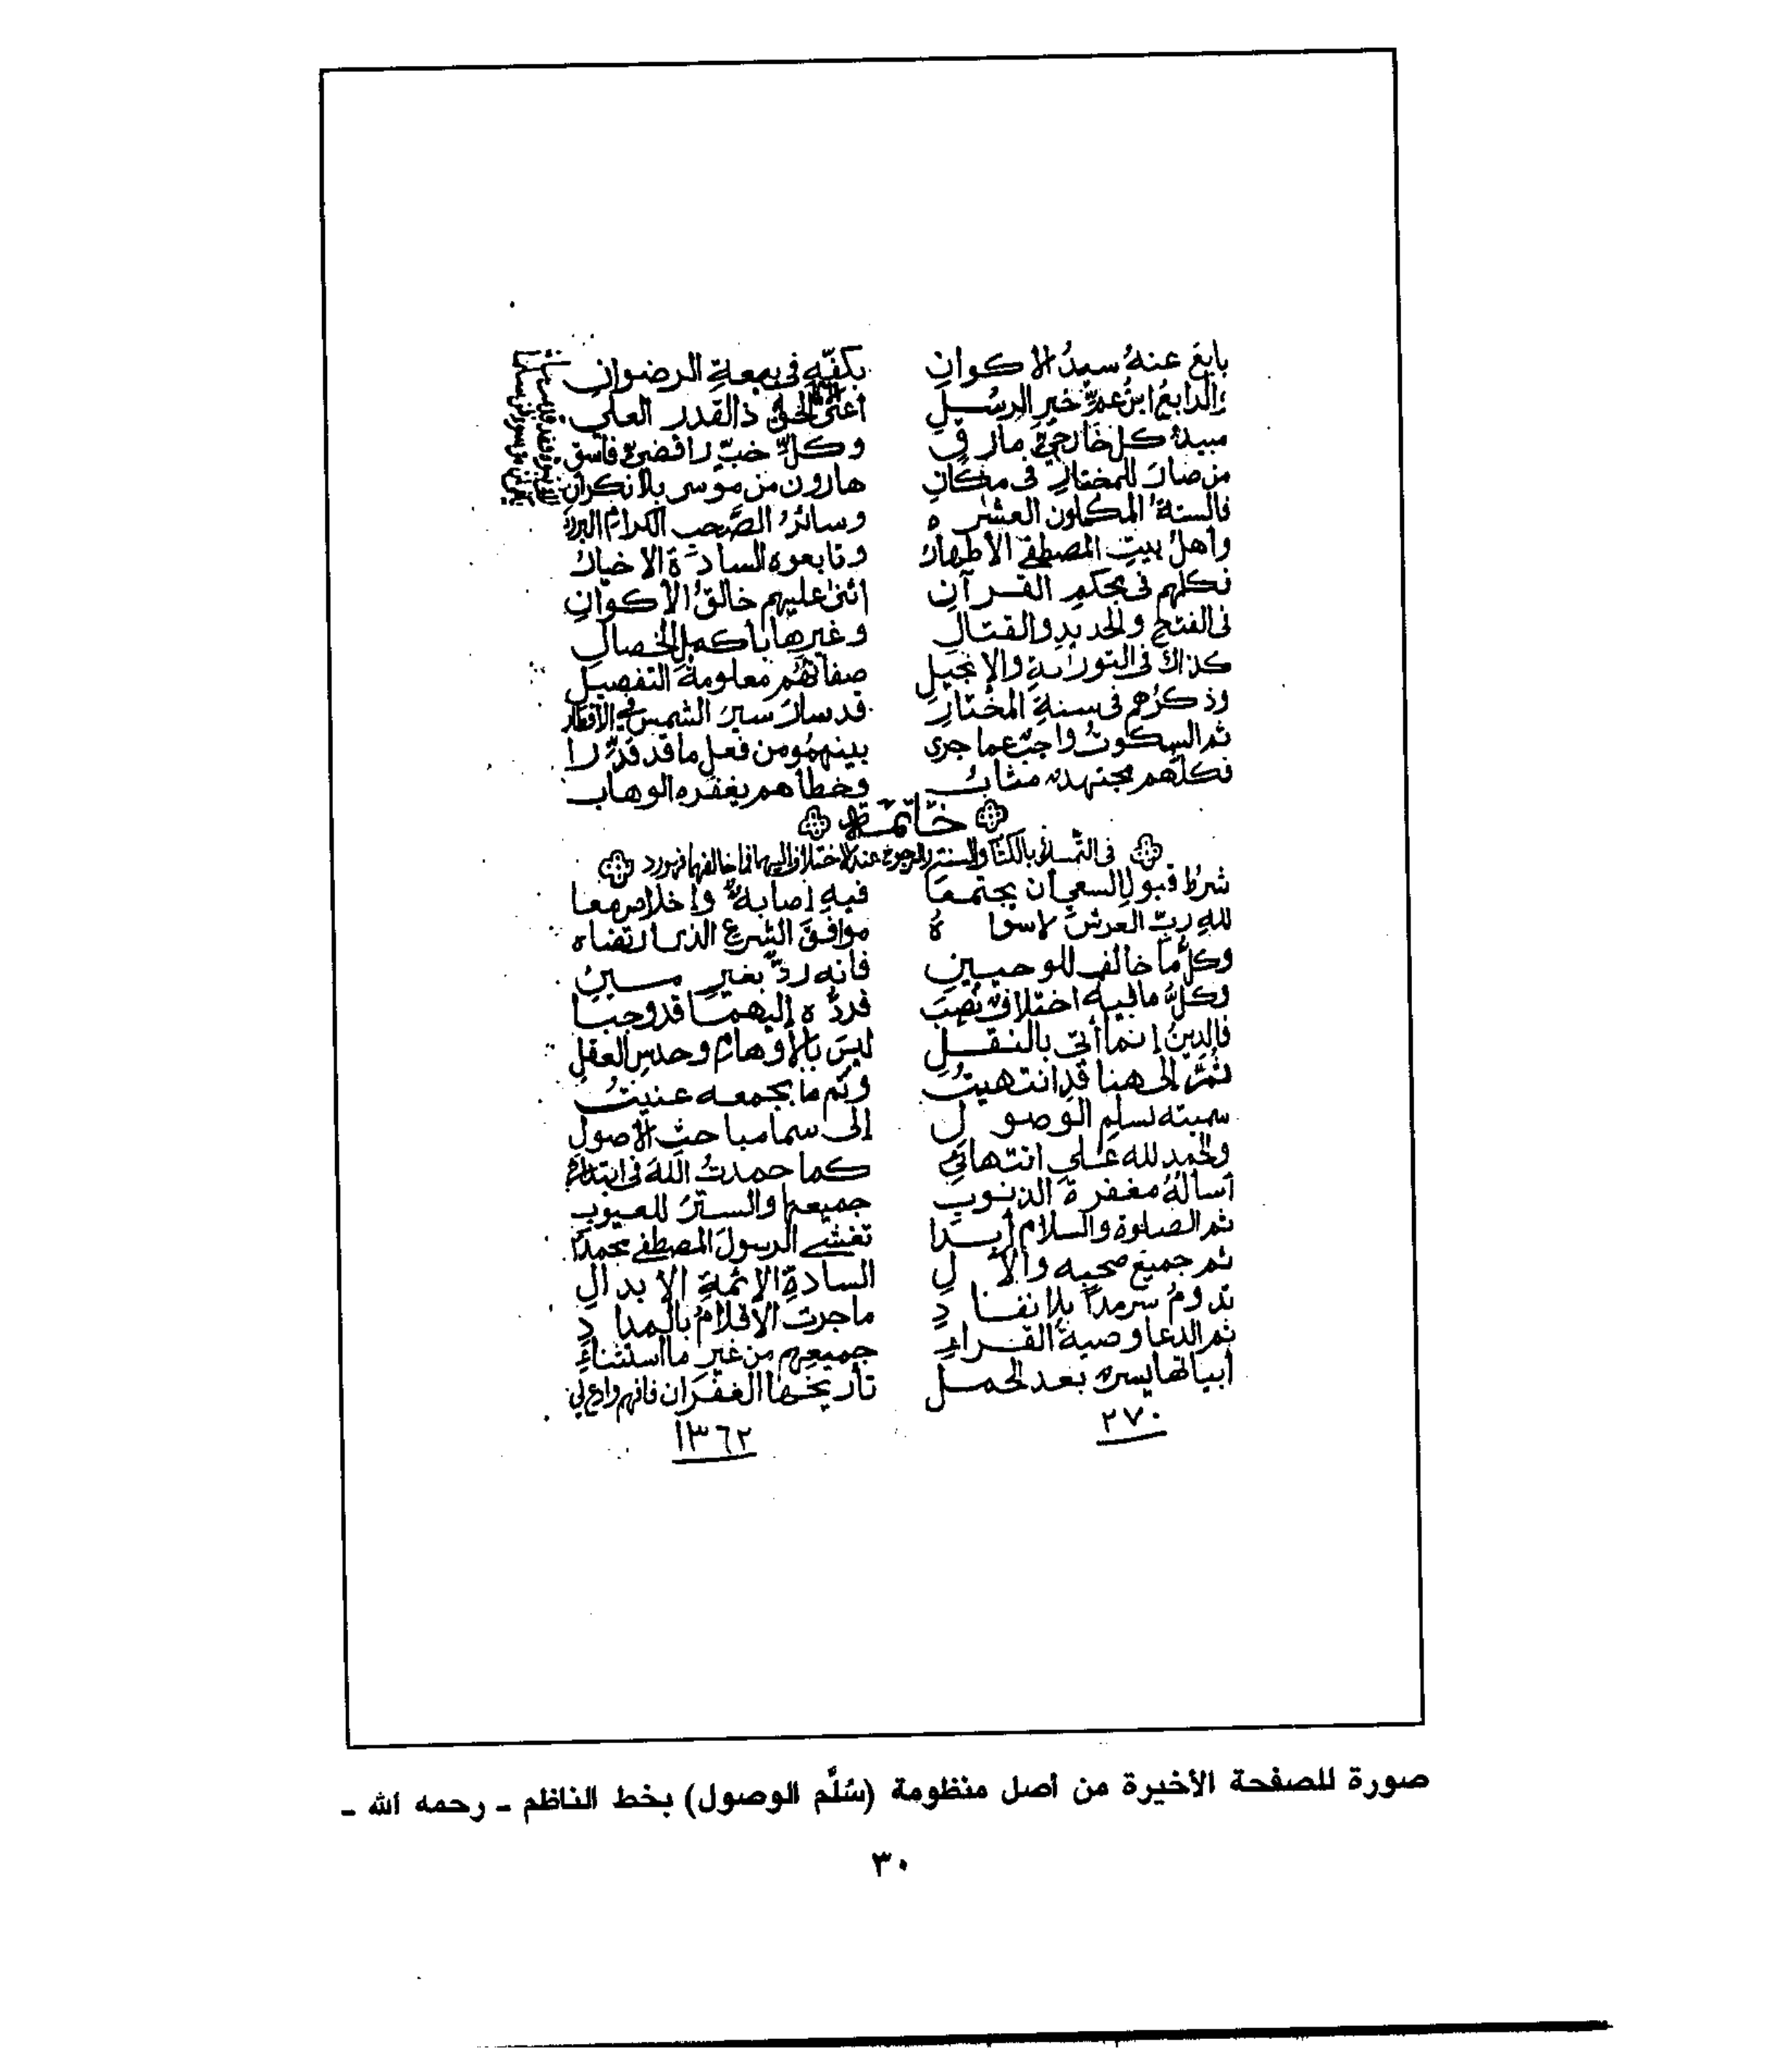 بايعَ عنهُ سيدُ الاكوانِ بكفّهِ في بيعةِ الرضوانِ
والرابعُ ابنُ عمِّ خيرِ الرسُلِ أعني الإمام الحقَّ ذا القدر العلي
مبيدُ كل خارجيٍّ مارقِ وكلِّ خبٍّ رافضيٍّ فاسقِ
من صارَ للمختارِ في مكانِ هارون من موسى بلا نكرانِ
فالستةُ المكملون العشره وسائرُ الصَّحبِ الكرامِ البررَة
وأهلُ بيتِ المصطفى الأطهارُ وتابعوه السادةُ الاخيارُ
فكلهم في محكمِ القرآنِ اثنى عليهم خالقُ الأكوانِ
في الفتحِ والحديدِ والقتالِ وغيرِها بأكملِ الخصالِ
كذاك في التوراةِ والإنجيلِ صفاتُهُم معلومةُ التفصيلِ
وذكرُهم في سنةِ المختارِ قد سارَ سيرَ الشمسِ في الأقطارِ
ثم السكوتُ واجبٌ عما جرى بينهمُو من فعلِ ما قد قُدِّرا
فكلهم مجتهد مثابُ وخطأهم يغفره الوهاب
خاتمة
في التمسك بالكتاب والسنة والرجوع عند الاختلاف اليهما فما خالفهما فهو رد
شرطُ قبولِ السعيِ أن يجتمعا فيهِ إصابةٌ وإخلاص معا
للهِ ربِّ العرشِ لا سواهُ موافقَ الشرعِ الذي ارتضاه
وكلُّ ما خالف للوحيينِ فانه ردٌّ بغيرِ مينِ
وكلُّ ما فيه اختلافٌ نُصِبَا فردُّه إليهما قد وجبا
فالدينُ إنما أتى بالنقلِ ليسَ بالأوهامِ وحدسِ العقلِ
ثُمَّ إلى هنا قدِ انتهيتُ وتم ما بجمعه عنيتُ
سميته بسلمِ الوصولِ إلى سما مباحثِ الأصولِ
والحمد لله على انتهائي كما حمدتُ اللهَ في ابتدائي
أسألهُ مغفرةَ الذنوبِ جميعها والسترَ للعيوبِ
ثم الصلوة والسلام أبدا تغشى الرسولَ المصطفى محمدًا
ثم جميعَ صحبِه والآلِ السادةِ الائمةِ الابدالِ
تدومُ سرمدًا بلا نفادِ ما جرت الأقلامُ بالمدادِ
ثم الدعا وصيةُ القراءِ جميعِهم من غير ما استثناءِ
أبياتها يسر بعد الجمل تأريخها الغفران فافهم وادع لي
٢٧٠ ١٣٦٢
صورة للصفحة الأخيرة من أصل منظومة (سُلَّم الوصول) بخط الناظم ـ رحمه الله ـ
٣٠